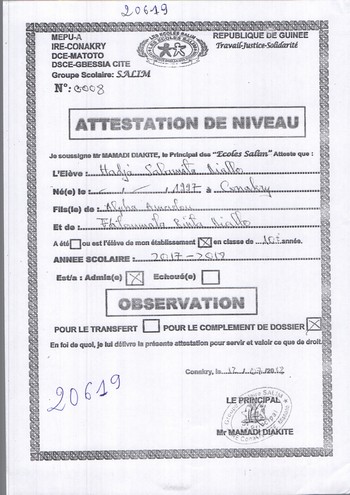 20619
MEPU-A
IRE-CONAKRY
DCE-MATOTO
DSCE-GBESSIA CITE
Groupe Scolaire: SALIM
N°: 0008
REPUBLIQUE DE GUINEE
Travail-Justice-Solidarité
ATTESTATION DE NIVEAU
Je soussigne Mr MAMADI DIAKITE, le Principal des "Ecoles Salim" Atteste que :
L'Elève : Hadja Diallo
Né(e) le : / / 1997 à Conakry
Fils(le) de : Alpha Amadou
Et de : Fatoumata Binta Diallo
A été ou est l'élève de mon établissement X en classe de 10è année.
ANNEE SCOLAIRE : 2017-2018
Est/a : Admis(e) X Echoué(e)
OBSERVATION
POUR LE TRANSFERT POUR LE COMPLEMENT DE DOSSIER X
En foi de quoi, je lui délivre la présente attestation pour servir et valoir ce que de droit.
Conakry, le
20619
LE PRINCIPAL
Mr MAMADI DIAKITE